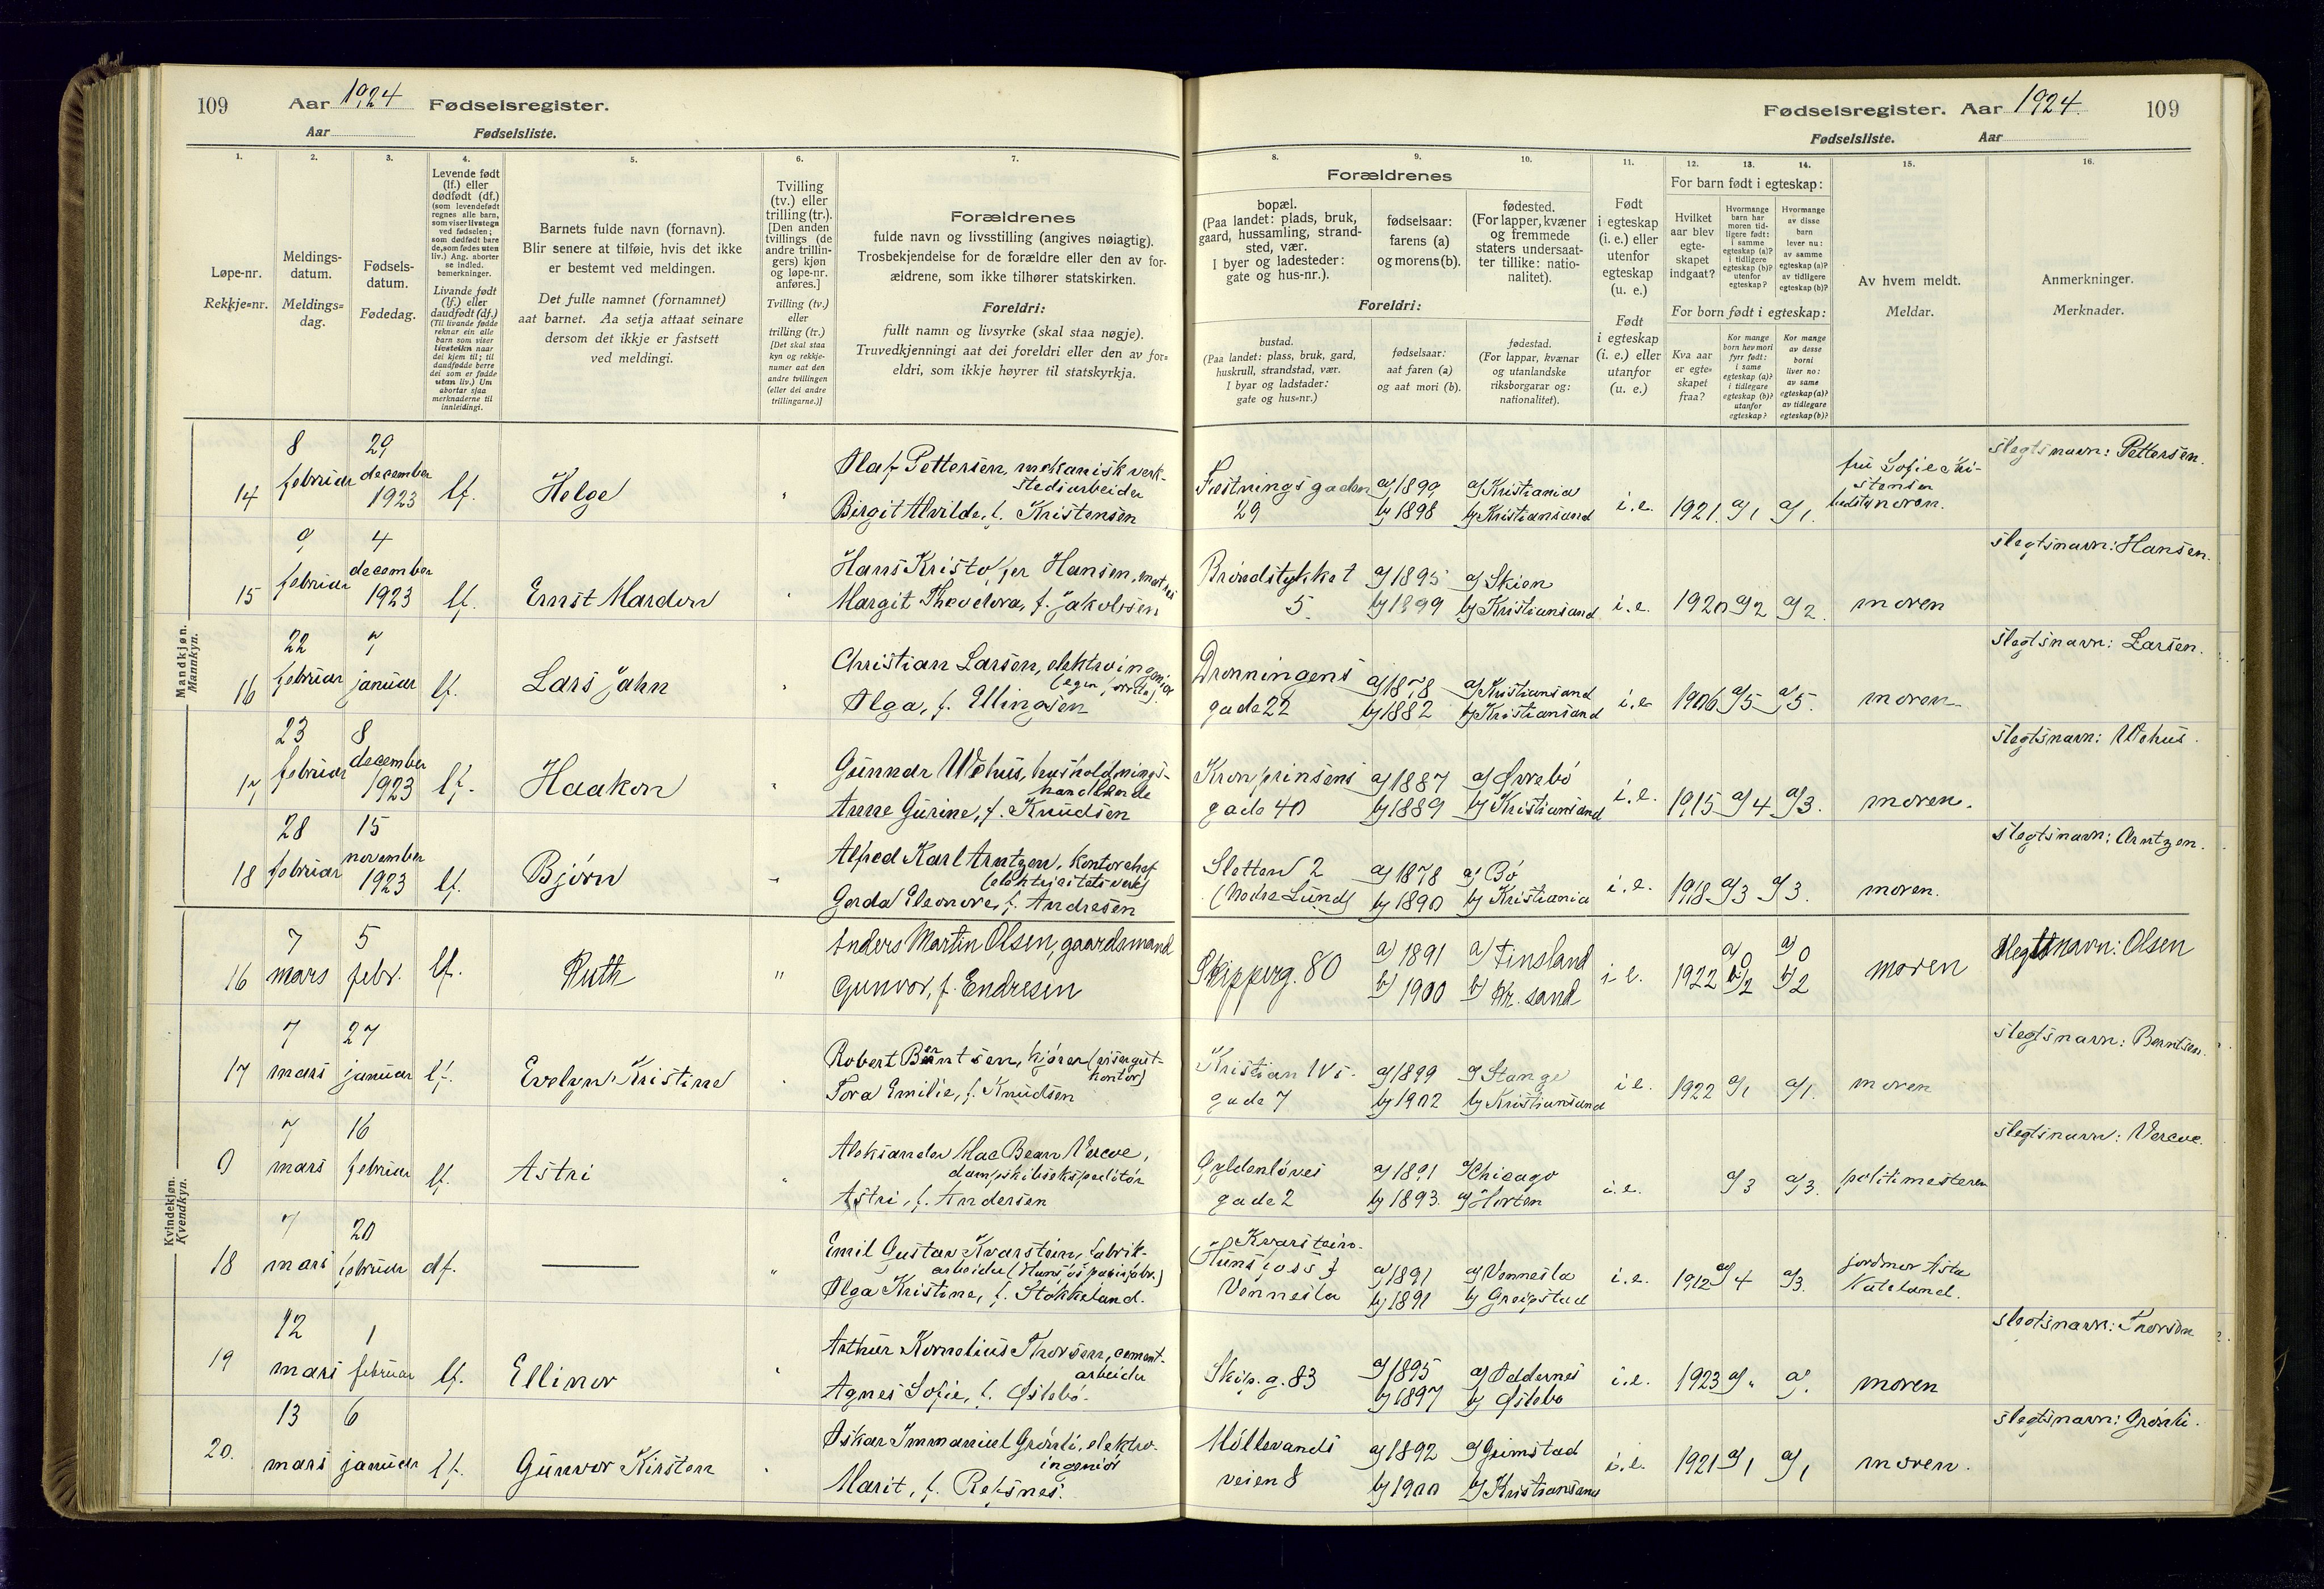 109 Aar 1924 Fødselsregister.
Aar Fødselsliste.
Fødselsregister. Aar 1924. 109
Fødselsliste. Aar
1. 2. 3. 4. 5. 6. 7.
Løpe-nr.
Rekkje=nr.
Meldings-
datum.
Meldings=
dag.
Fødsels-
datum.
Fødedag.
Levende født
(lf.) eller
dødfødt (df.)
(som levendefødt
regnes alle barn,
som viser livstegn
ved fødselen;
som dødfødt bare
de, som fødes uten
liv.) Ang. aborter
se indled.
bemerkninger.
Livande født
(lf.) eller
daudfødt (df.)
(Til livande fødde
reknar ein alle
barn som viser
livsteikn naar
dei kjem til; til
daudfødde berre
dei som er fødde
utan liv.) Um
abortar sjaa
merknaderne til
innleidingi.
Barnets fulde navn (fornavn).
Blir senere at tilføie, hvis det ikke
er bestemt ved meldingen.
Det fulle namnet (fornamnet)
aat barnet. Aa setja attaat seinare
dersom det ikkje er fastsett
ved meldingi.
Tvilling
(tv.) eller
trilling (tr.).
[Den anden
tvillings (de
andre trillin-
gers) kjøn
og løpe-nr.
anføres.]
Tvilling (tv.)
eller
trilling (tr.)
[Det skal staa
kyn og rekkje-
numer aat den
andre tvillingen
(eller dei andre
trillingarne.)]
Forældrenes
fulde navn og livsstilling (angives nøiagtig).
Trosbekjendelse for de forældre eller den av for-
ældrene, som ikke tilhører statskirken.
Foreldri:
fullt namn og livsyrke (skal staa nøgje).
Truvedkjenningi aat dei foreldri eller den av for=
eldri, som ikkje høyrer til statskyrkja.
8. 9. 10. 11. 12. 13. 14. 15. 16.
Forældrenes
bopæl.
(Paa landet: plads, bruk,
gaard, hussamling, strand-
sted, vær.
I byer og ladesteder:
gate og hus-nr.).
fødselsaar:
farens (a)
og morens (b).
fødested.
(For lapper, kvæner
og fremmede
staters undersaat-
ter tillike: natio-
nalitet).
Foreldri:
bustad.
(Paa landet: plass, bruk, gard,
huskrull, strandstad, vær.
I byar og ladstader:
gate og hus=nr.)
fødselsaar:
aat faren (a)
og aat mori (b).
fødestad.
(For lappar, kvænar
og utanlandske
riksborgarar og:
nationalitet).
Født
i egteskap
(i. e.) eller
utenfor
egteskap
(u. e.)
Født
i egteskap
(i. e.) eller
utanfor
(u. e.)
For barn født i egteskap:
Hvilket
aar blev
egte-
skapet
indgaat?
Hvormange
barn har
moren tid-
ligere født:
i samme
egteskap (a)?
i tidligere
egteskap (b)?
utenfor
egteskap?
Hvormange
av disse
barn
lever nu:
av samme
egteskap (a)?
av tidligere
egteskap (b)?
For born født i egteskap:
Kva aar
er egte-
skapet
fraa?
Kor mange
born hev mori
fyrr født:
i same
egteskap (a)?
i tidlegare
egteskap (b)?
utanfor
egteskap?
Kor mange
av desse
borni
liver no:
av same
egteskap (a)?
av tidlegare
egteskap (b)?
Av hvem meldt.
Meldar.
Anmerkninger.
Merknader.
Mandkjøn.
Mannkyn.
14 8 februar 29 december 1923 lf. Helge " Olaf Pettersen, mekanisk verk-
stedsarbeider
Birgit Alvilde, f. Kristensen
Festningsgaden 29 a) 1899 b) 1898 a) Kristiania b) Kristiansand i.e. 1921. a) 1 a) 1. fru Sofie Kri-
stensen
moren. Slegtsnavn: Pettersen.
15 9 februar 4 december 1923 lf. Ernst Mardon " Hans Kristoffer Hansen,
Margit Theodora, f. Jakobsen
Brøndstykket 5. a) 1895 b) 1899 a) Skien b) Kristiansand i.e. 1920 a) 2 a) 2. moren Slegtsnavn: Hansen.
16 22 februar 7 januar lf. Lars Jahn " Christian Larsen, elektroingeniør
Olga, f. Ellingsen
Dronningens gade 22 a) 1878 b) 1882 a) Kristiansand b) Kristiansand i.e. 1906 a) 5 a) 5. moren Slegtsnavn: Larsen.
17 23 februar 8 december 1923 lf. Haakon " Gunnar Wehus, husholdnings-
handlende
Anne Gurine, f. Knudsen
Kronprinsens gade 40 a) 1887 b) 1889 a) Øvrebö b) Kristiansand i.e. 1915 a) 4 a) 3. moren. Slegtsnavn: Wehus.
18 28 februar 15 november 1923 lf. Bjørn " Alfred Karl Arntzen, kontorchef
(elektricitetsverk)
Gerda Eleonore, f. Andresen
Sletten 2
(Nedre Lund) a) 1878 b) 1890 a) Bö b) Kristiania i.e. 1918 a) 3 a) 3. moren. Slegtsnavn: Arntzen.
Kvindekjøn.
Kvendkyn.
16 7 mars 5 febr. lf. Ruth " Anders Martin Olsen, gaardsmand
Gunvor, f. Endresen
Skipperg. 80 a) 1891 b) 1900 a) Finsland b) Kr.sand i.e. 1922 a) 0 b) 2 a) 0 b) 2 moren Slegtsnavn: Olsen
17 7 mars 27 januar lf. Evelyn Kristine " Robert Berntsen, kjører (visergut-
kontor)
Tora Emilie, f. Knudsen
Kristian IVs gade 7 a) 1899 b) 1902 a) Stange b) Kristiansand i.e. 1922 a) 1 a) 1. moren Slegtsnavn: Berntsen.
9 7 mars 16 februar lf. Astri " Aleksander Mac Bean Vereve,
dampskibsekspeditör
Astri, f. Andersen
Gyldenløves gade 2 a) 1891 b) 1893. a) Chicago b) Horten i.e. a) 3 a) 3. politimesteren Slegtsnavn: Vereve.
18 7 mars 20 februar df. — " Emil Gustav Kvarstein, fabrik-
arbeider (Hunsfos papirfabr.)
Olga Kristine, f. Stokkeland.
Kvarstein.
(Hunsfoss)
Vennesla a) 1891 b) 1891 a) Vennesla b) Greipstad i.e. 1912 a) 4 a) 3. jordmor Asta
Nateland.
19 12 mars 1 februar lf. Ellinor " Arthur Kornelius Thorsen, cement-
arbeider
Agnes Sofie, f. Øslebö.
Skip.g. 83 a) 1895 b) 1897 a) Oddernes b) Øslebø i.e. 1923 a) " a) ". moren Slegtsnavn: Thorsen
20. 13 mars 6 januar lf. Gunvor Kirsten " Oskar Immanuel Grønli, elektro-
ingeniør
Marit, f. Reksnes.
Möllevands veien 8 a) 1892 b) 1900 a) Grimstad b) Kristiansand i.e. 1921 a) 1 a) 1 moren. Slegtsnavn: Grønli.